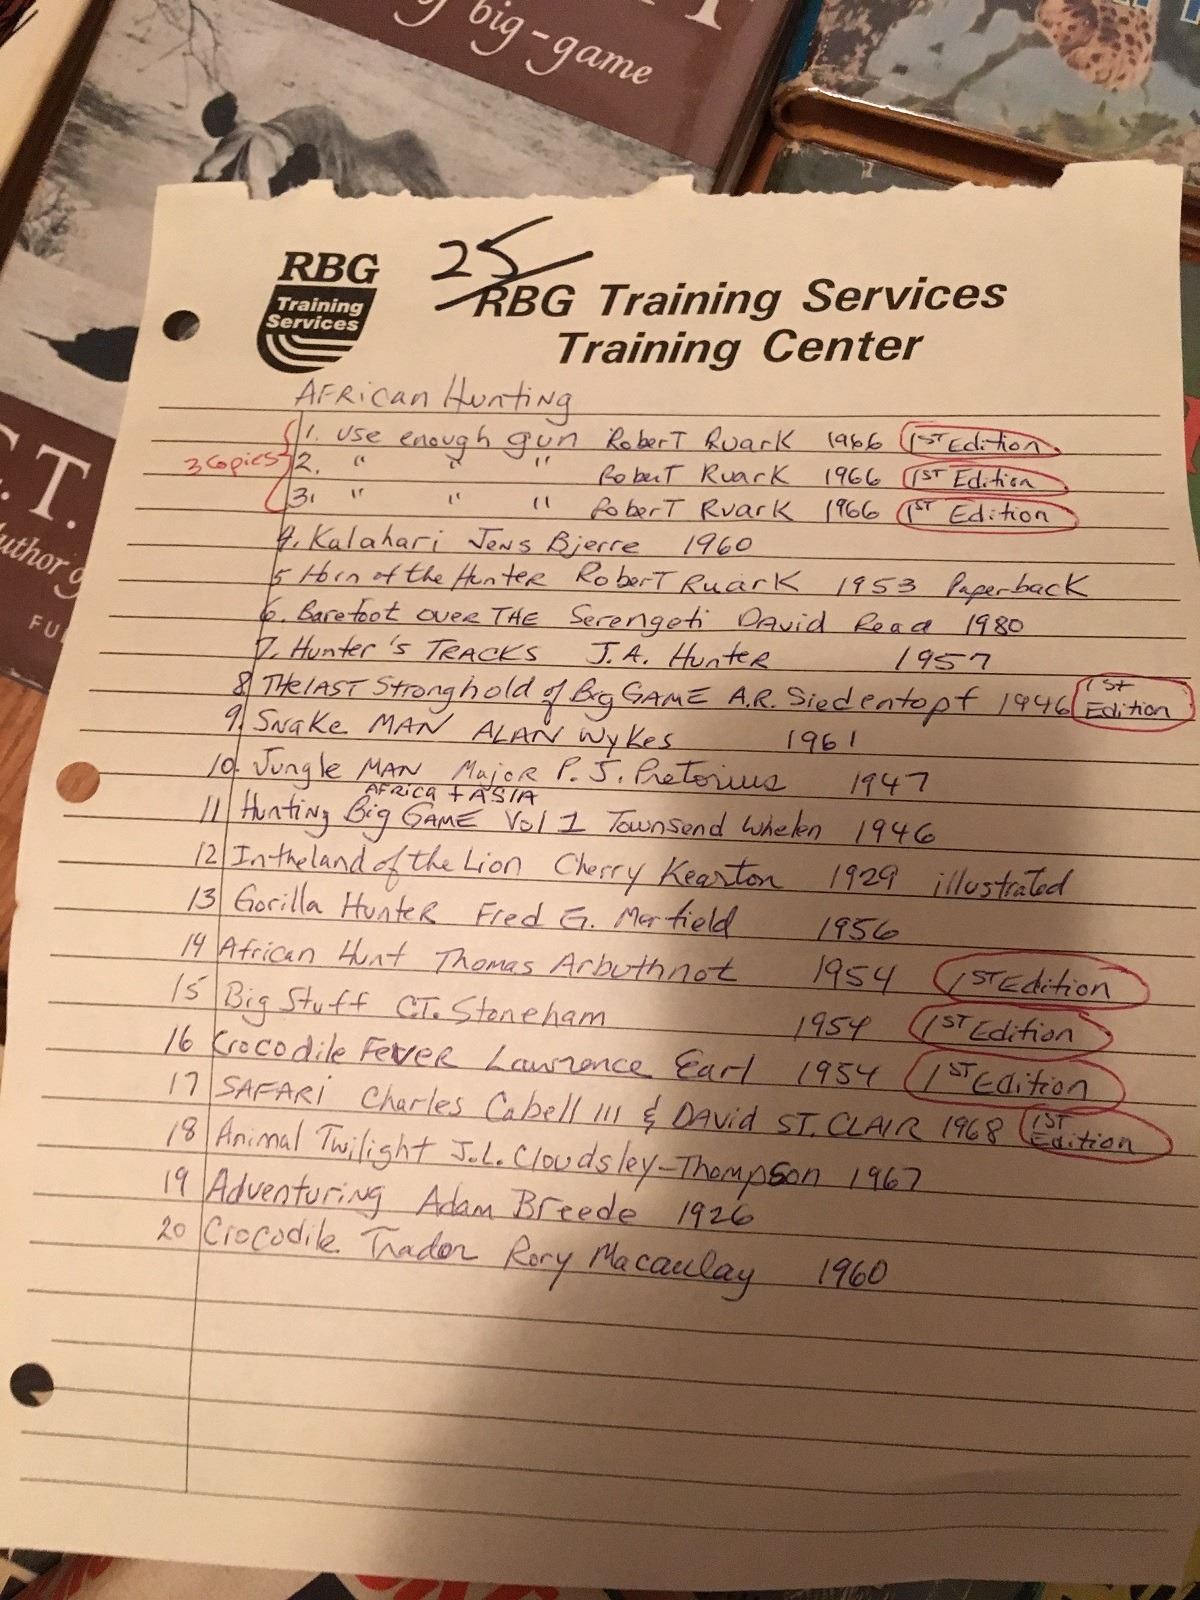 of big-game
RBG
Training
Services
25
RBG Training Services
Training Center
African Hunting
3 Copies
1. Use enough gun Robert Ruark 1966 1ST Edition
2. " " " Robert Ruark 1966 1ST Edition
3. " " " Robert Ruark 1966 1ST Edition
4. Kalahari Jens Bjerre 1960
5 Horn of the Hunter Robert Ruark 1953 Paperback
6. Barefoot over THE Serengeti David Read 1980
7. Hunter's TRACKS J.A. Hunter 1957
8 THE LAST Stronghold of Big GAME A.R. Siedentopf 1946 1st Edition
9. Snake MAN ALAN Wykes 1961
10. Jungle MAN Major P. J. Pretorius 1947
AFRICA + ASIA
11 Hunting Big GAME Vol 1 Townsend Whelen 1946
12 In the land of the Lion Cherry Kearton 1929 illustrated
13 Gorilla Hunter Fred G. Merfield 1956
14 African Hunt Thomas Arbuthnot 1954 1ST Edition
15 Big Stuff C.T. Stoneham 1954 1ST Edition
16 Crocodile Fever Lawrence Earl 1954 1ST Edition
17 SAFARI Charles Cabell III & DAVID ST. CLAIR 1968 1ST Edition
18 Animal Twilight J.L. Cloudsley-Thompson 1967
19 Adventuring Adam Breede 1926
20 Crocodile Trader Rory Macaulay 1960
.T.
Author of
FU